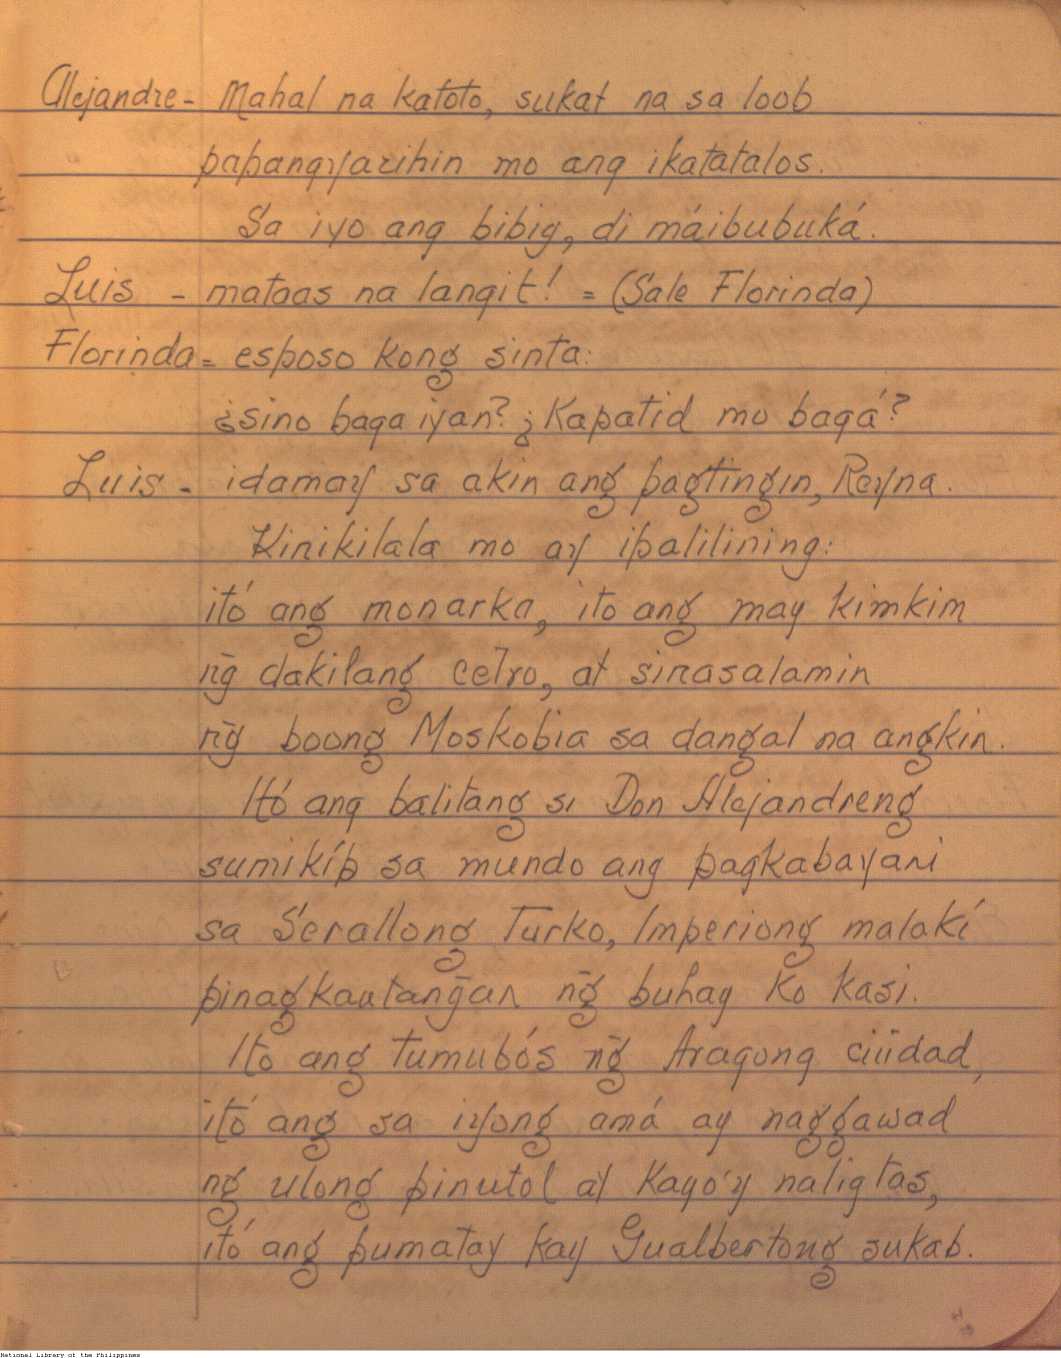 Alejandre - Mahal na katoto, sukat na sa loob
papangyarihin mo ang ikatatalos.
Sa iyo ang bibig, di máibubuká.
Luis - mataas na langit! = (Sale Florinda)
Florinda = esposo kong sinta:
¿sino baga iyan? ¿Kapatid mo bagá?
Luis - idamay sa akin ang pagtingin, Reyna.
Kinikilala mo ay ipalilining:
itó ang monarka, ito ang may kimkim
n̄g dakilang cetro, at sinasalamin
n̄g boong Moskobia sa dangal na angkin.
Itó ang balitang si Don Alejandreng
sumikíp sa mundo ang pagkabayani
sa Serallong Turko, Imperiong malakí
pinagkautan̄gan n̄g buhay ko kasi.
Ito ang tumubós n̄g Aragong ciudad,
itó ang sa iyong amá ay naggawad
ng ulong pinutol at kayo'y naligtas,
itó ang pumatay kay Gualbertong sukab.
National Library of the Philippines